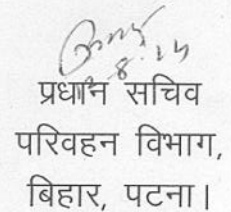 प्रधान सचिव
परिवहन विभाग,
बिहार, पटना।